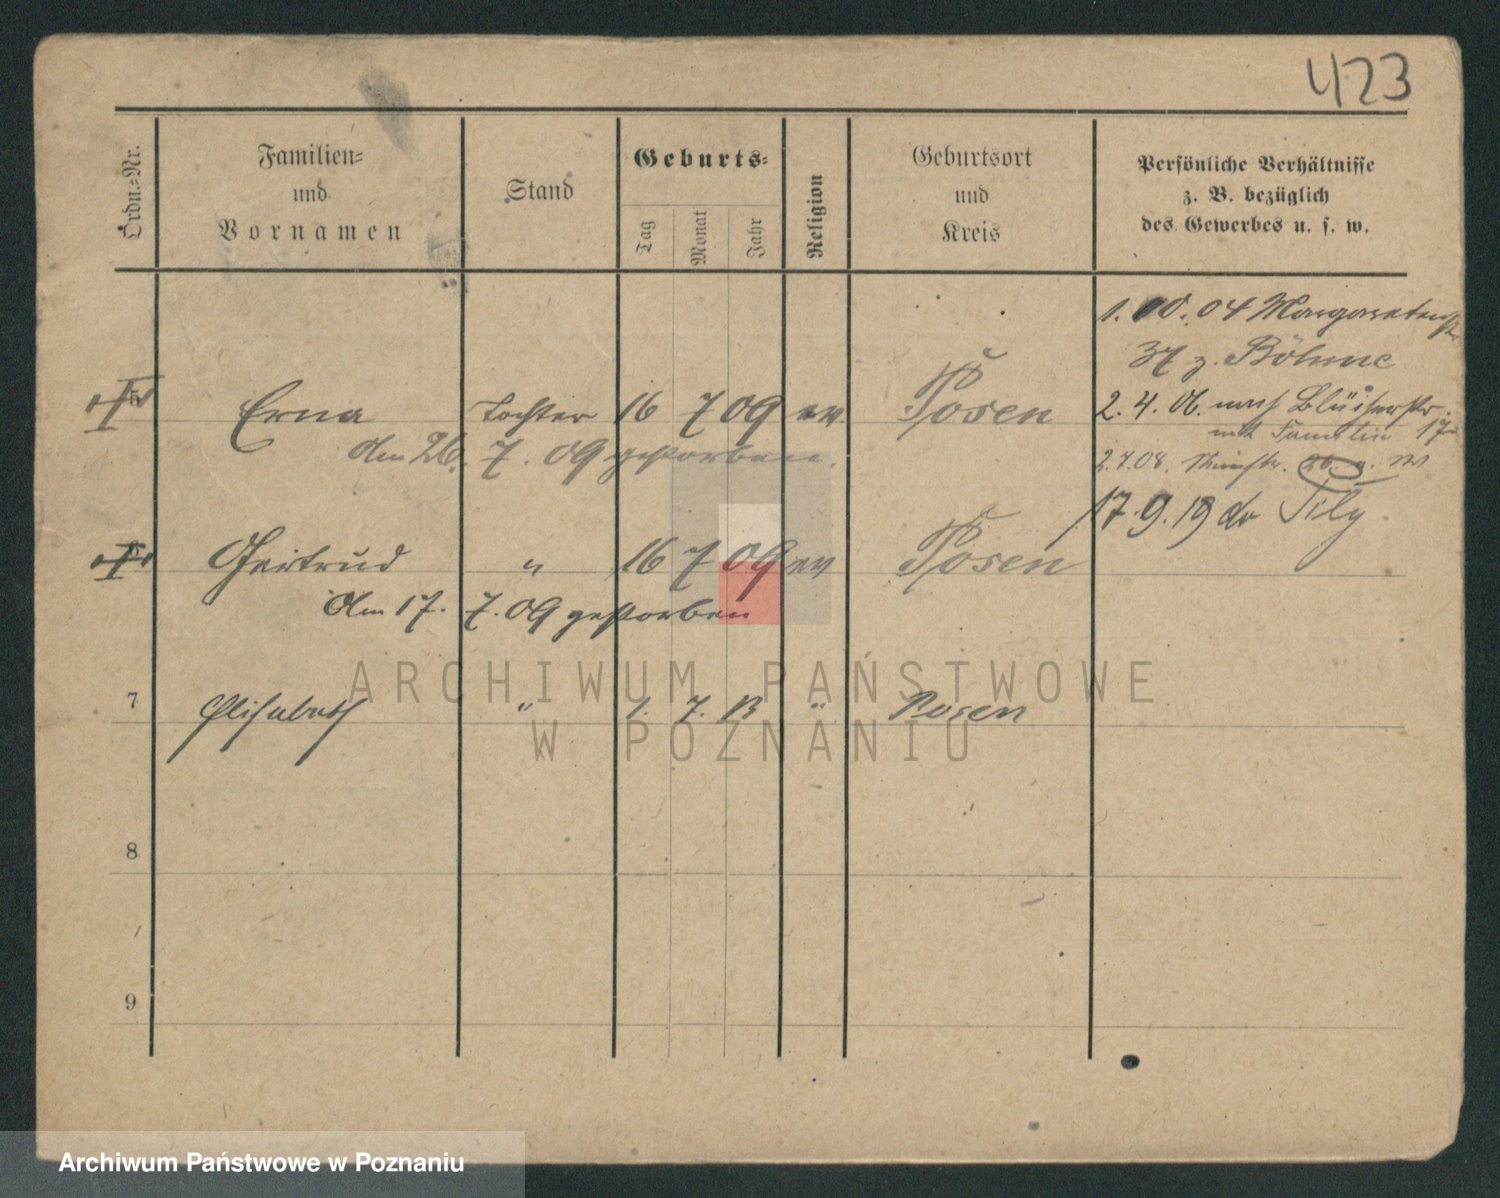 423
Ordn.=Nr.
Familien=
und
Vornamen
Stand
Geburts=
Tag
Monat
Jahr
Religion
Geburtsort
und
Kreis
Persönliche Verhältnisse
z. B. bezüglich
des Gewerbes u. s. w.
1. 10. 04 Margaretenstr
37 z. Böhme
5 Erna Tochter 16 7 09 ev. Posen
2. 4. 06. nach Blücherstr.
mit Familie 17
Am 26. 7. 09 gestorben.
2.7.08.
17.9.19 do Tily
6 Gertrud " 16 7 09 ev Posen
Am 17. 7. 09 gestorben
ARCHIWUM PAŃSTWOWE
7 Elisabeth " 1. 7. 13 " Posen
W POZNANIU
8
9
Archiwum Państwowe w Poznaniu